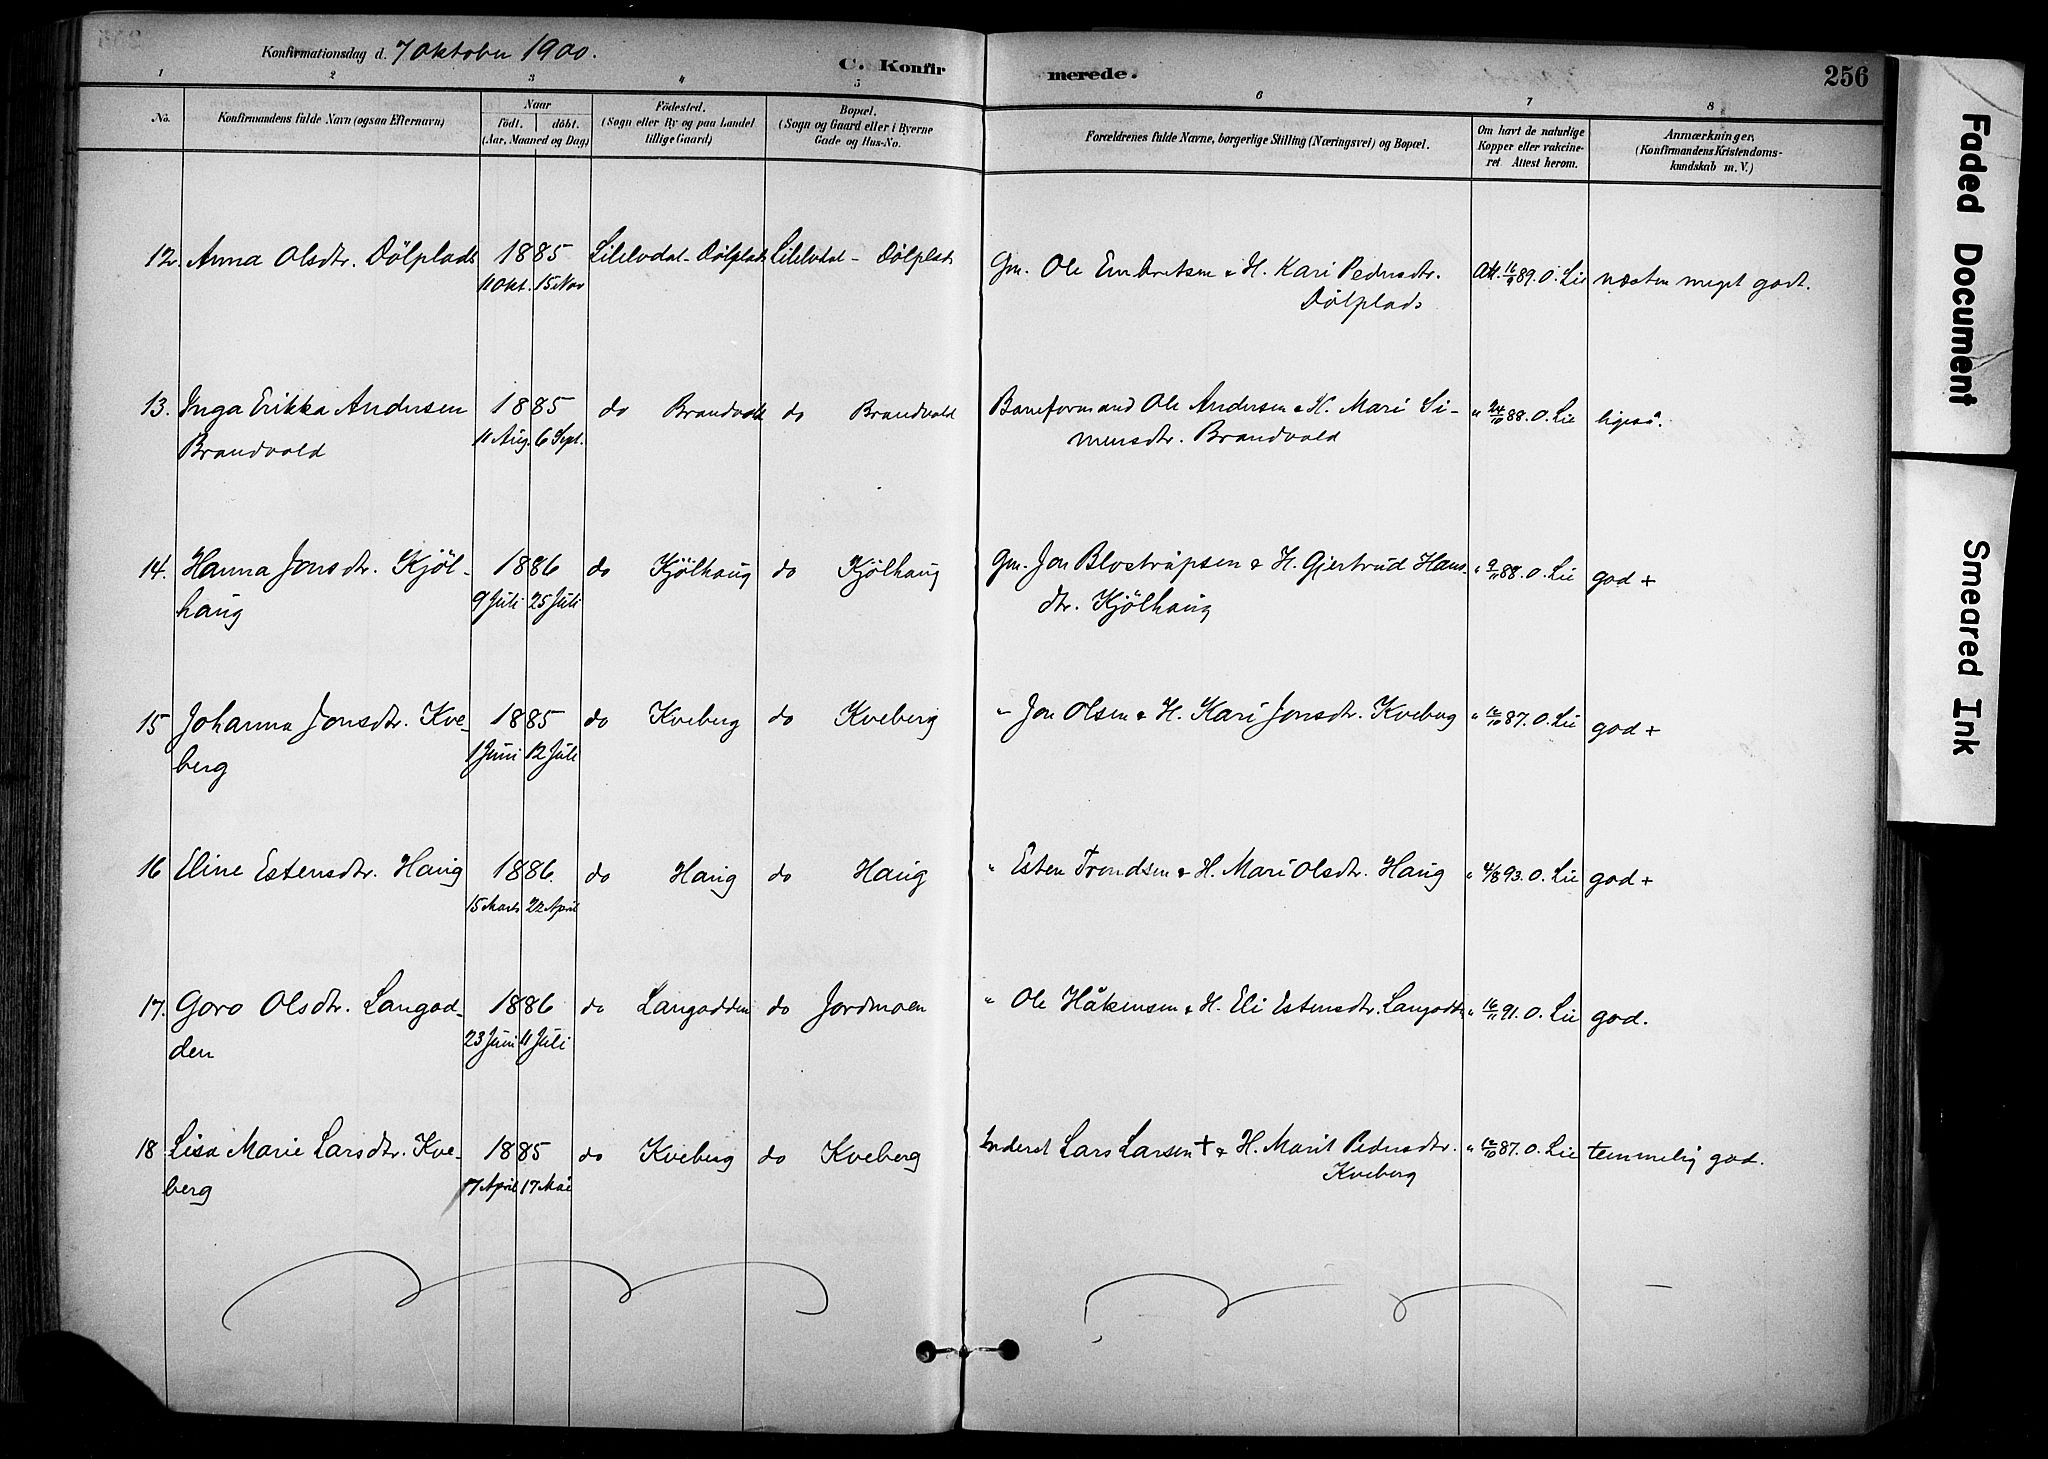 Konfirmationsdag d. 7 Oktober 1900.
C. Konfirmerede.
256
1 2 3 " 5 6 7 8
No.
Konfirmandens fulde Navn (ogsaa Efternavn)
Naar
födt. döbt.
(Aar, Maaned og Dag)
Födested.
(Sogn eller By og paa Landet
tillige Gaard)
Bopæl.
(Sogn og Gaard eller i Byerne
Gade og Hus-No.
Forældrenes fulde Navne, borgerlige Stilling (Næringsvei) og Bopæl.
Om havt de naturlige
Kopper eller vakcine-
ret Attest herom.
Anmærkninger,
(Konfirmandens Kristendoms-
kundskab m. V.)
12. Anna Olsdtr. Dölplads 1885 Lilelvdal - Dölplads Lilelvdal - Dölplads Gm. Ole Embretsen & H. Kari Pedersdtr. Att. 89. O. Lie næsten meget godt.
11 Okt. 15 Nov Dölplads
13. Inga Erikka Andersen 1885 do Brandvold do Brandvold Baneformand Ole Andersen & H. Mari Si- " 24/10 88. O. Lie ligeså.
Brandvold 11 Aug. 6 Sept. mensdtr. Brandvold
14. Hanna Jonsdtr. Kjöl- 1886 do Kjölhaug do Kjölhaug Gm. Jon & H. Gjertrud Hans- " 9/11 88. O. Lie god +
haug 9 Juli 25 Juli dtr. Kjölhaug
15 Johanna Jonsdtr. Kve- 1885 do Kveberg do Kveberg " Jon Olsen & H. Kari Jonsdtr. Kveberg " 12/10 87. O. Lie god +
berg 1 Juni 12 Juli
16 Eline Estensdtr. Haug 1886. do Haug do Haug " Esten Trondsen & H. Mari Olsdtr. Haug " 4/8 93. O. Lie god +
15 Marts 22 April
17. Goro Olsdtr. Langod- 1886 do Langodden do Jordmoen " Ole Håkensen & H. Eli Estensdtr. Langodden " 16/11 91. O. Lie god.
den 23 Juni 11 Juli
18. Lisa Marie Larsdtr. Kve- 1885 do Kveberg do Kveberg Inderst Lars Larsen † & H. Marit Pedersdtr. " 12/10 87. O. Lie temmelig god.
berg 17 April 17 Mai Kveberg
Faded Document
Smeared Ink